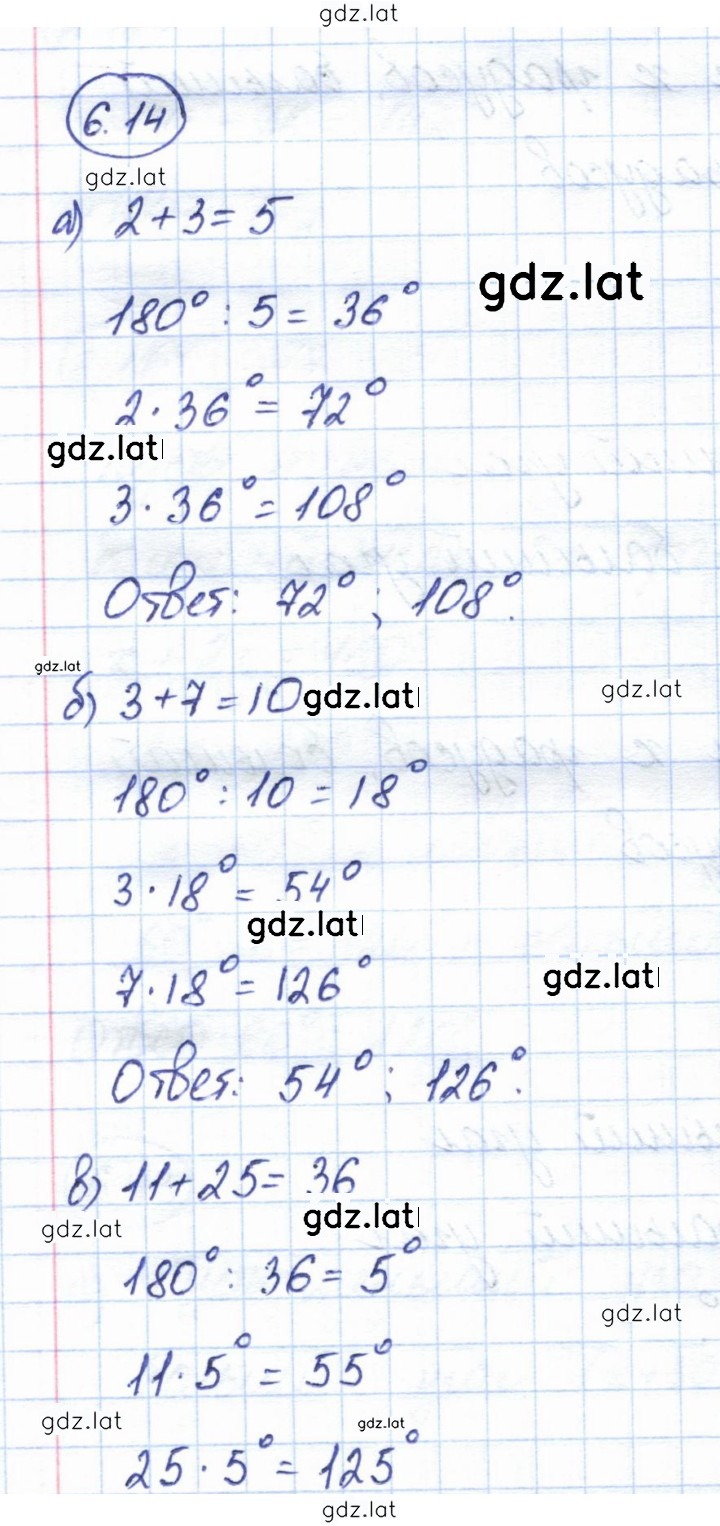 gdz.lat
6.14
gdz.lat
а) 2+3=5
gdz.lat
180° : 5 = 36°
2·36° = 72°
gdz.lat
3·36° = 108°
Ответ: 72° ; 108°.
gdz.lat
б) 3+7=10
gdz.lat
gdz.lat
180° : 10 = 18°
3·18° = 54°
gdz.lat
7·18° = 126°
gdz.lat
Ответ: 54° ; 126°.
в) 11+25= 36
gdz.lat
gdz.lat
180° : 36 = 5°
gdz.lat
11·5° = 55°
gdz.lat
gdz.lat
25·5° = 125°
gdz.lat